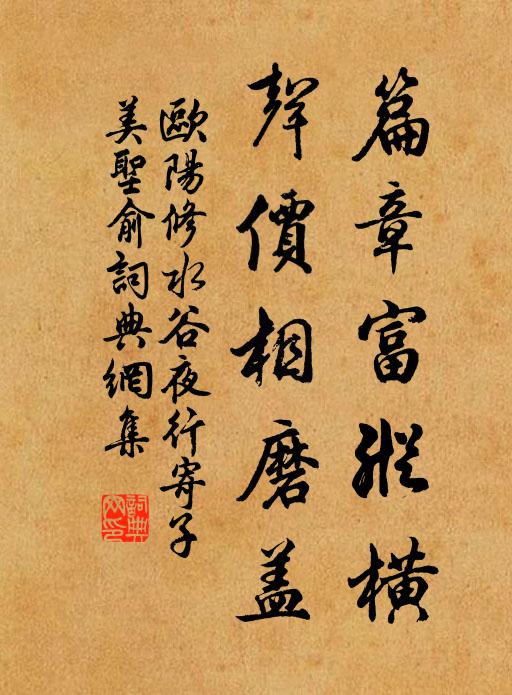 篇章富縱橫
聲價相磨蓋
歐陽修水谷夜行寄子
美聖俞詞典網集
詞典
网印